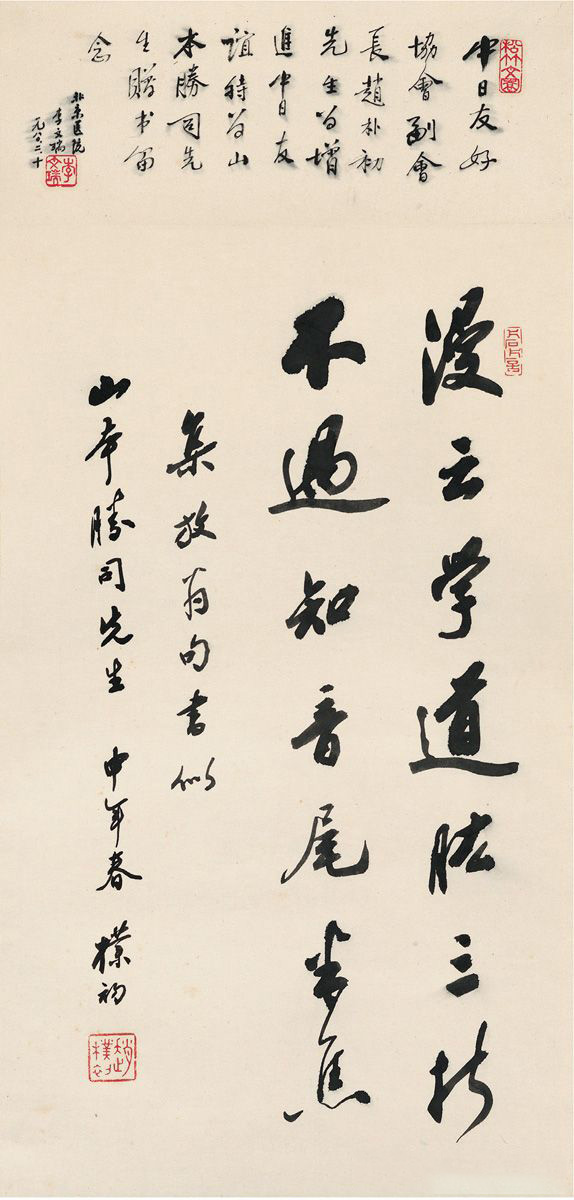 中日友好
協會副會
長趙朴初
先生為增
進中日友
誼特為山
本勝司先
生贈书留
念
北京医院
李文瑞
李文瑞
漫云学道肱三折
不過知音尾半焦
集放翁句書似
山本勝司先生 申年春 樸初
趙樸初